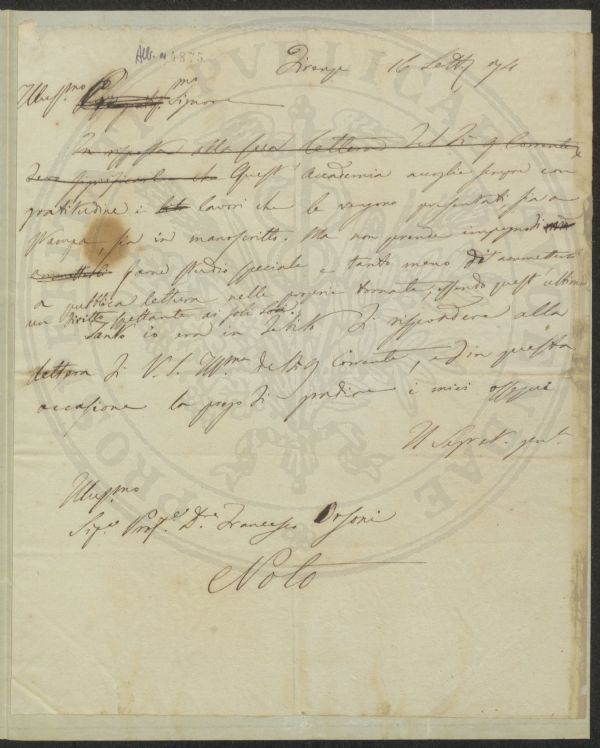 Firenze 16 Sett. 74
Illus.mo Simone
In risposta alla sua lettera del dì 9 Corrente
deve significarle che Quest' Accademia accoglie sempre con
gratitudine i lavori che le vengono presentati, sia a
stampa, sia in manoscritto. Ma non prende impegno di
farne studio speciale e tanto meno di ammetterli
a pubblica lettura nelle proprie tornate, essendo quest' ultimo
un diritto spettante ai soli Soci.
Tanto io era in debito di rispondere alla
lettera di V. S. Ill.ma del dì 9 Corrente, ed in questa
occasione la prego di gradire i miei ossequi
Il Segret.
Illus.mo
Sig.e Prof.e D.re Francesco Orsoni
Noto